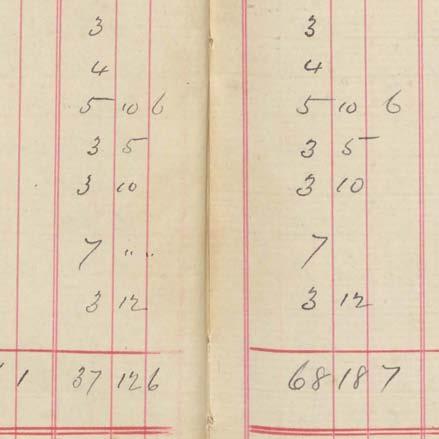 3 3
4 4
5 10 6 5 10 6
3 5 3 5
3 10 3 10
7 " " 7
3 12 3 12
1 37 12 6 68 18 7